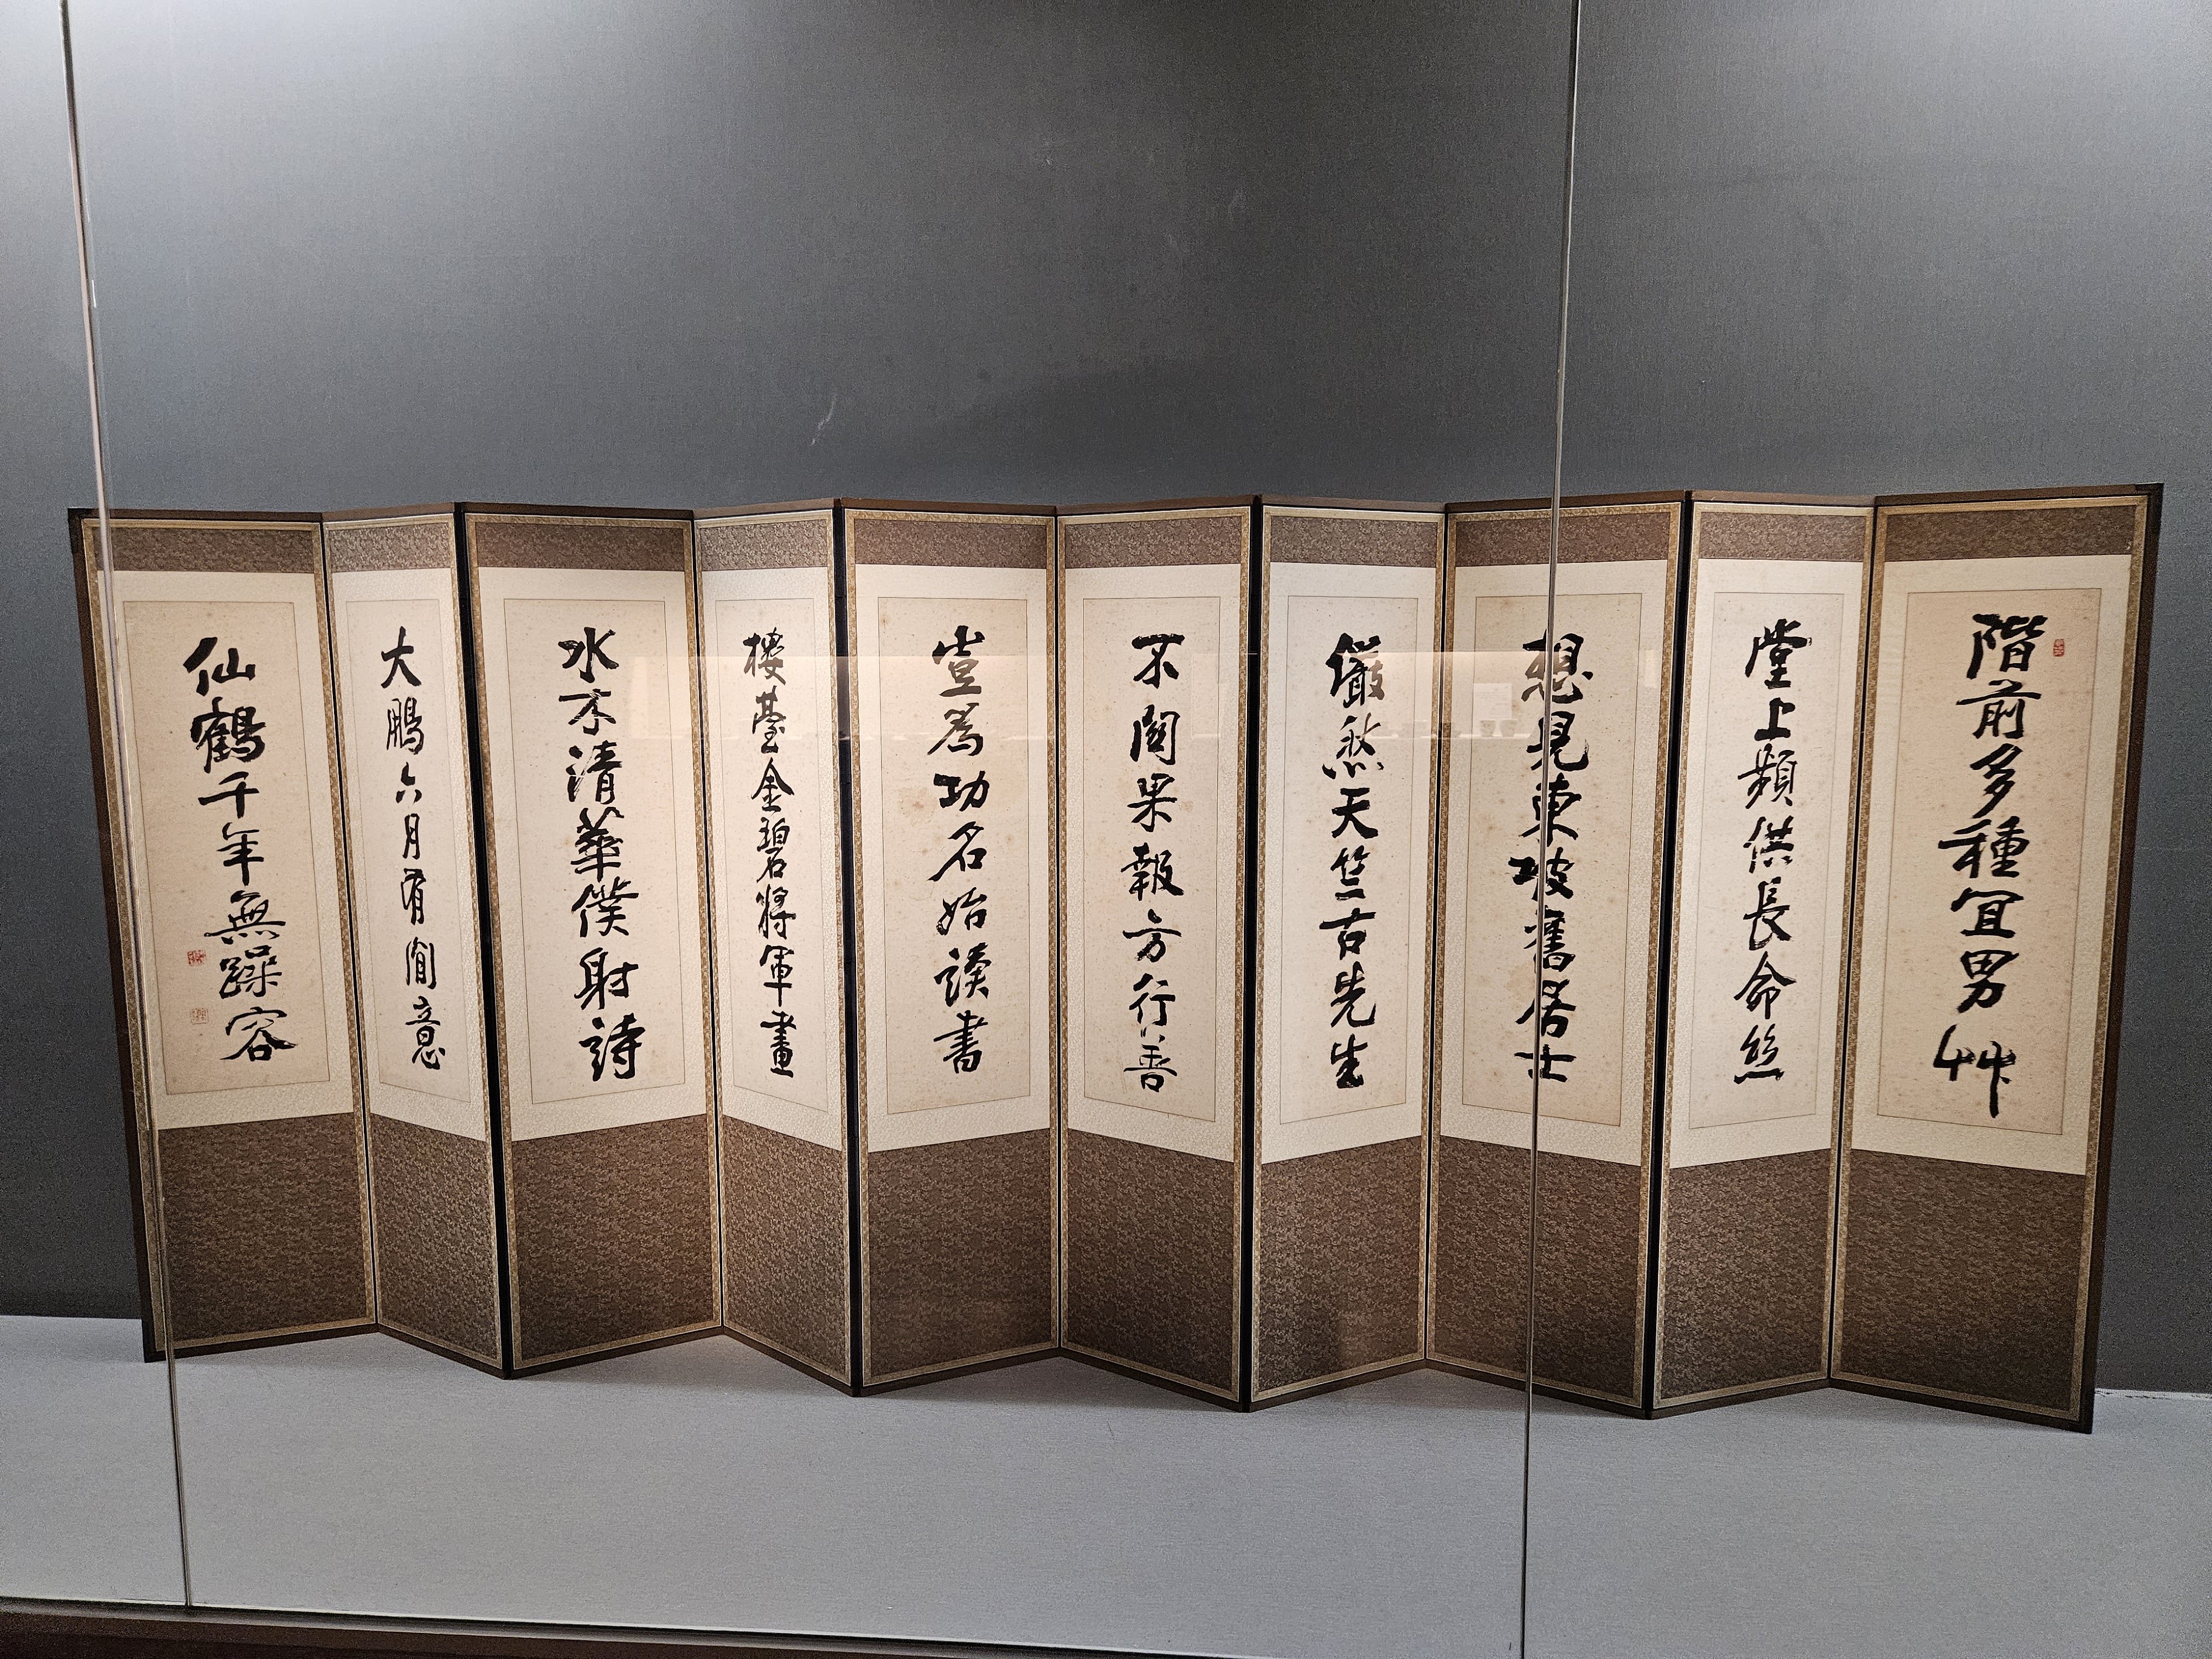 階前多種宜男艸
堂上頻供長命絲
想見東坡舊居士
儼然天竺古先生
不關果報方行善
豈爲功名始讀書
樓臺金碧將軍畫
水木清華僕射詩
大鵬六月有閒意
仙鶴千年無躁容